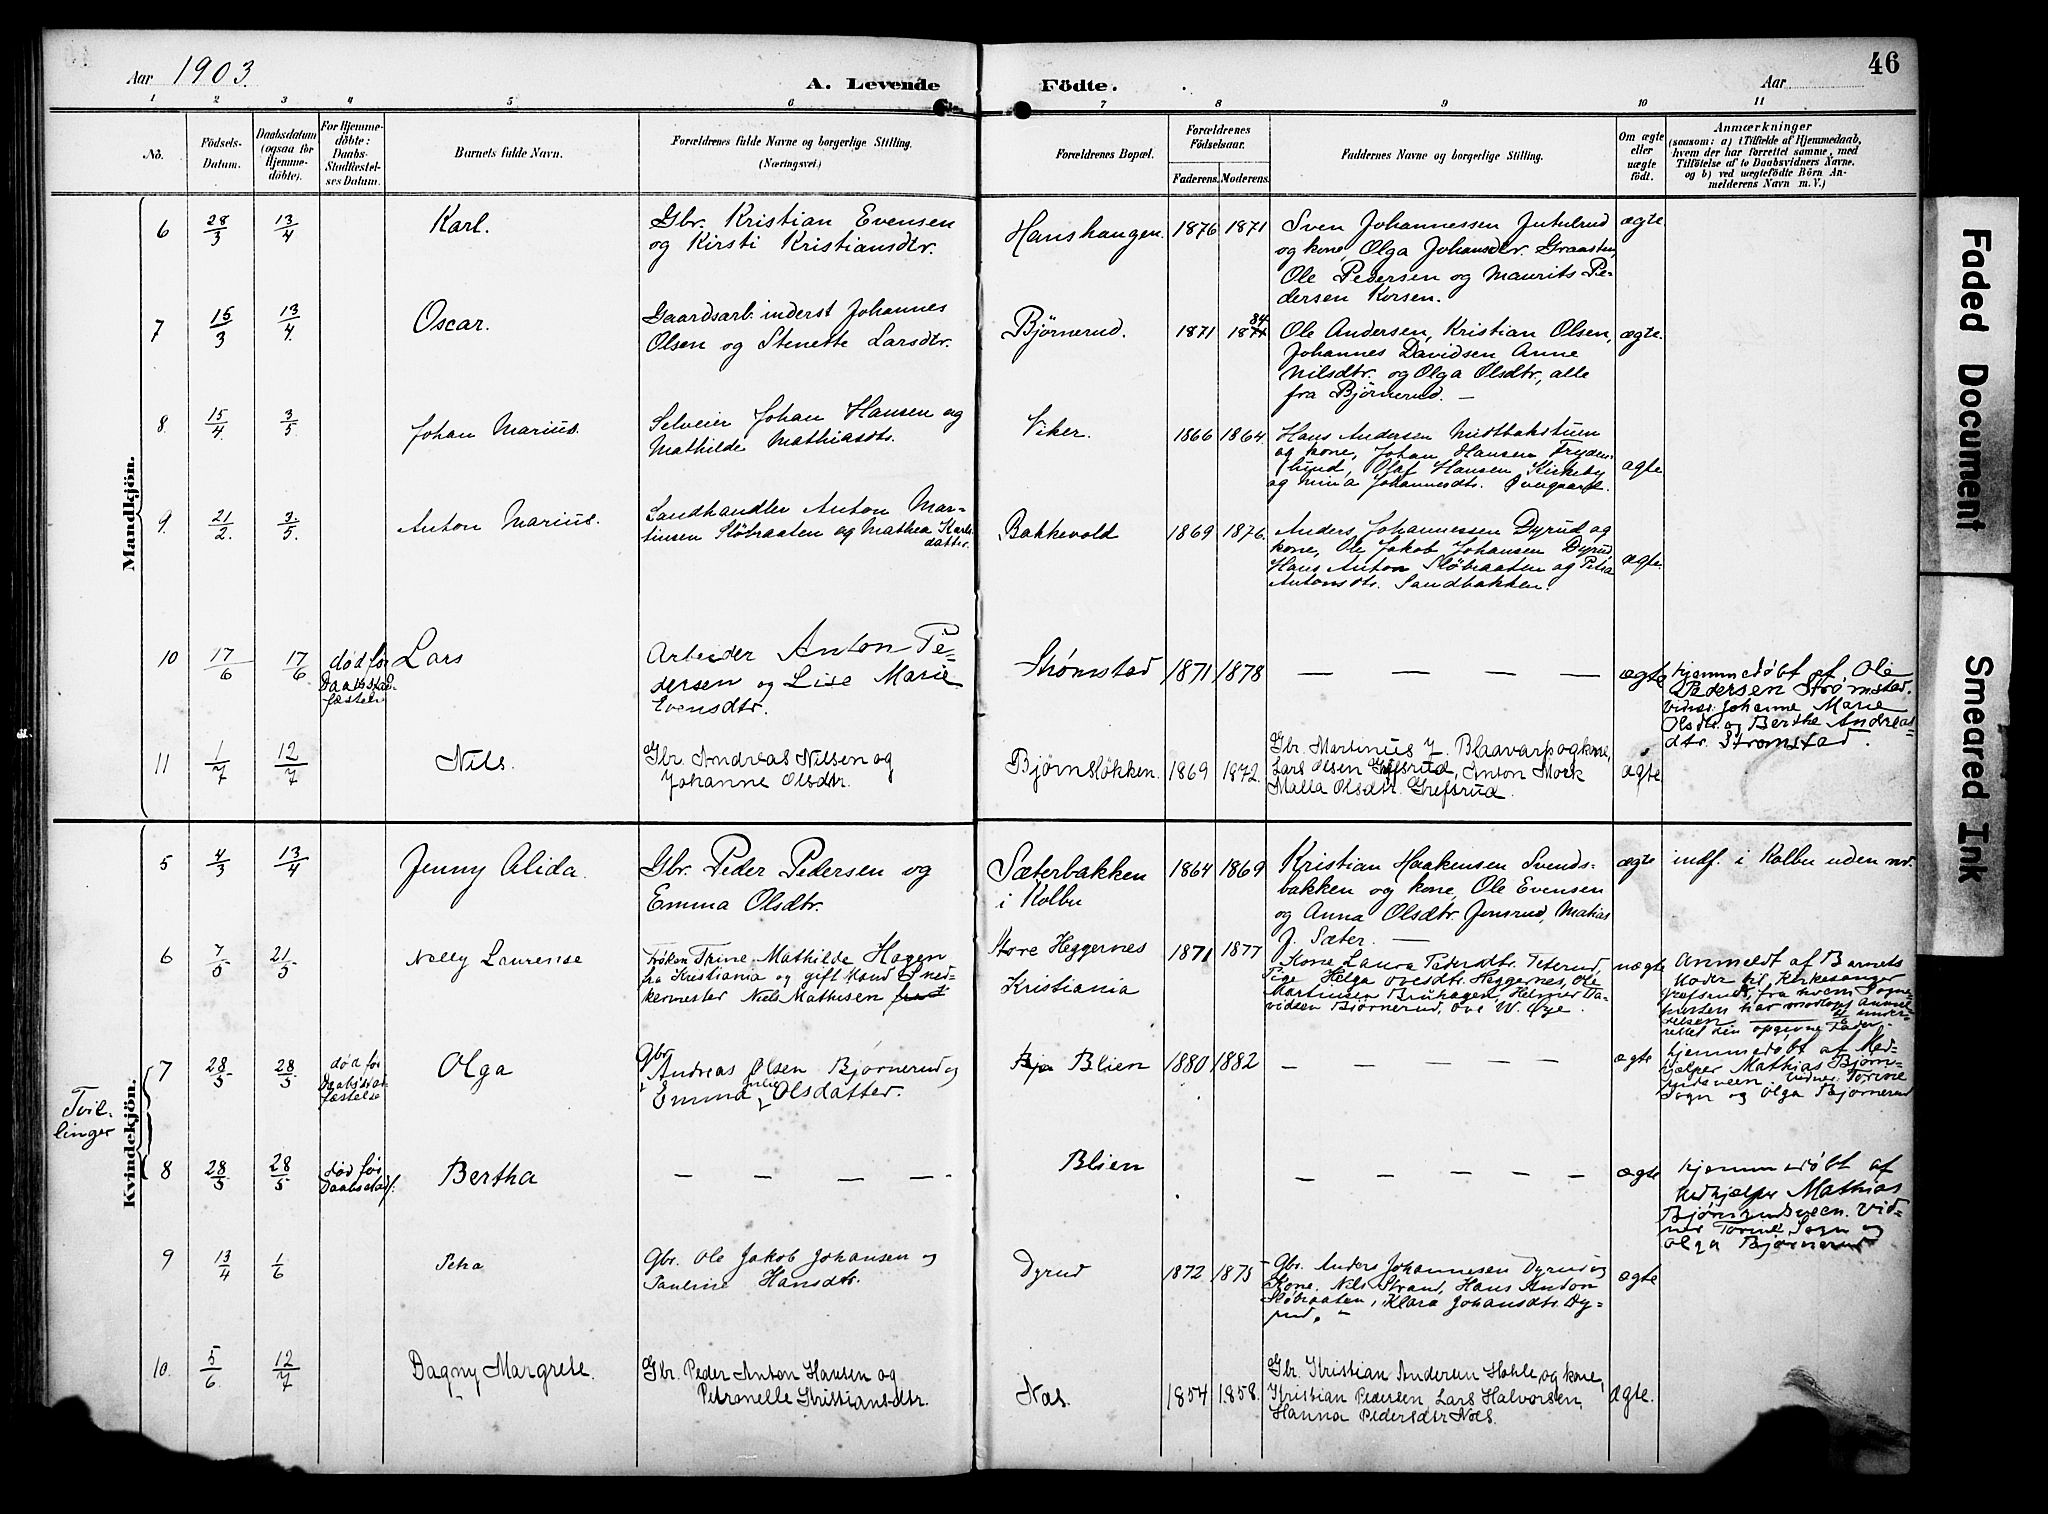 46
Aar 1903.
A. Levende Födte.
Aar
1 2 3 4 5 6 7 8 9 10 11
No.
Födsels-
Datum.
Daabsdatum
(ogsaa for
Hjemme-
döbte).
For Hjemme-
döbte:
Daabs-
Stadfæstel-
ses Datum.
Barnets fulde Navn.
Forældrenes fulde Navne og borgerlige Stilling.
(Næringsvei.)
Forældrenes Bopæl.
Forældrenes
Födselsaar.
Faderens. Moderens.
Faddernes Navne og borgerlige Stilling.
Om ægte
eller
uægte
födt.
Anmærkninger
(saasom: a) i Tilfælde af Hjemmedaab,
hvem der har forrettet samme, med
Tilföielse af to Daabsvidners Navne,
og b) ved uægtefödte Börn An-
melderens Navn m. V.)
Mandkjön.
6 28/3 13/4 Karl.
Gbr. Kristian Evensen
og Kirsti Kristiansdtr.
Hanshaugen. 1876 1871
Sven Johannessen Jutulrud
og kone, Olga Johansdtr. Graasten,
Ole Pedersen og Maurits Pe-
dersen Korsen.
ægte.
7 15/3 13/4 Oscar.
Gaardsarb. inderst Johannes
Olsen og Stenette Larsdtr.
Bjørnerud. 1871 84 1871
Ole Andersen, Kristian Olsen,
Johannes Davidsen, Anne
Nilsdtr. og Olga Olsdtr, alle
fra Bjørnerud. —
ægte.
8. 15/4 3/5 Johan Marius.
Selveier Johan Hansen og
Mathilde Mathiasdtr.
Viker. 1866 1864
Hans Andersen Midtbakstuen
og kone, Johan Hansen Fryden-
lund, Olaf Hansen Kirkeby
og Mina Johannesdtr.
ægte
9. 21/2. 3/5. Anton Marius.
Landhandler Anton Mar-
tinsen Slöbraaten og Mathea Karls-
datter.
Bakkevold 1869 1876.
Anders Johannessen Dyrud og
kone, Ole Jakob Johansen Dyrud,
Hans Anton Slöbraaten og Petra
Antonsdtr. Sandbakken.
ægte.
10 17/6 17/6 død før
Daabsstad-
fæstelse
Lars
Arbeider Anton Pe-
dersen og Lise Marie
Evensdtr.
Strømstad 1871 1878 — — — —
ægte
hjemmedøbt af Ole
Pedersen Strømstad.
Vidner: Johanne Marie
Olsdtr og Berthe Andreas-
dtr. Strømstad.
11 1/7 12/7 Nils.
Gbr. Andreas Nilsen og
Johanne Olsdtr.
Bjørnsløkken. 1869 1872.
Gbr. Martinius J. Blaavarp og kone,
Lars Olsen Grefsrud, Anton Mork
Malla Olsdtr. Grefsrud.
ægte
Kvindekjön.
5 4/3 13/4 Jenny Alida.
Gbr. Peder Pedersen og
Emma Olsdtr.
Sæterbakken
i Kolbu
1864 1869
Kristian Haakensen Svends-
bakken og kone, Ole Evensen
og Anna Olsdtr. Jonsrud, Mathias
J. Sæter. —
ægte
indf. i Kolbu uden nr.
6 7/5 21/5 Nelly Laurense
Frøken Trine Mathilde Hagen
fra Kristiania og gift Mand Sned-
kermester Niels Mathisen
Store Heggernes
Kristiania
1871 1877
Kone Laura Pedersdtr. Teterud,
Pige Helga Ovesdtr. Heggernes, Ole
Martinsen Bruhagen, Helmer Da-
vidsen Bjørnerud, Ove W. Øye.
uægte
Anmeldt af Barnets
Moder til Kirkesanger
Grefsrud, fra hvem Sogne-
presten har modtaget Anmel-
delsen og under-
rettet den opgivne Fader.
Tvil-
linger
7 28/5 28/5 død før
Daabsstad-
fæstelse
Olga
Gbr
Andreas Olsen Bjørnerud og
Emma Julie Olsdatter.
Blien 1880 1882 — — — —
ægte
hjemmedøbt af Med-
hjælper Mathias Bjørn-
erudsveen. Vidner: Torine
Sogn og Olga Bjørnerud
8 28/5 28/5 død før
Daabsstadf:
Bertha
— — — —
Blien
— — — — —
ægte
hjemmedøbt af
Medhjælper Mathias
Bjørnerudsveen. Vid-
ner Torine Sogn og
Olga Bjørnerud
9 13/4 1/6 Petra
Gbr. Ole Jakob Johansen og
Pauline Hansdtr.
Dyrud 1872 1875
Gbr. Anders Johannesen Dyrud og
Kone, Nils Strand, Hans Anton
Slöbraaten, Klara Johansdtr. Dy-
rud. —
ægte
10. 5/6 12/7 Dagny Margrete.
Gbr. Peder Anton Hansen og
Petronelle Kristiansdtr.
Næs. 1854 1858.
Gbr. Kristian Andersen Hohle og kone,
Kristian Pedersen Lars Halvorsen,
Hanna Pedersdtr Næs.
ægte.
Faded Document
Smeared Ink